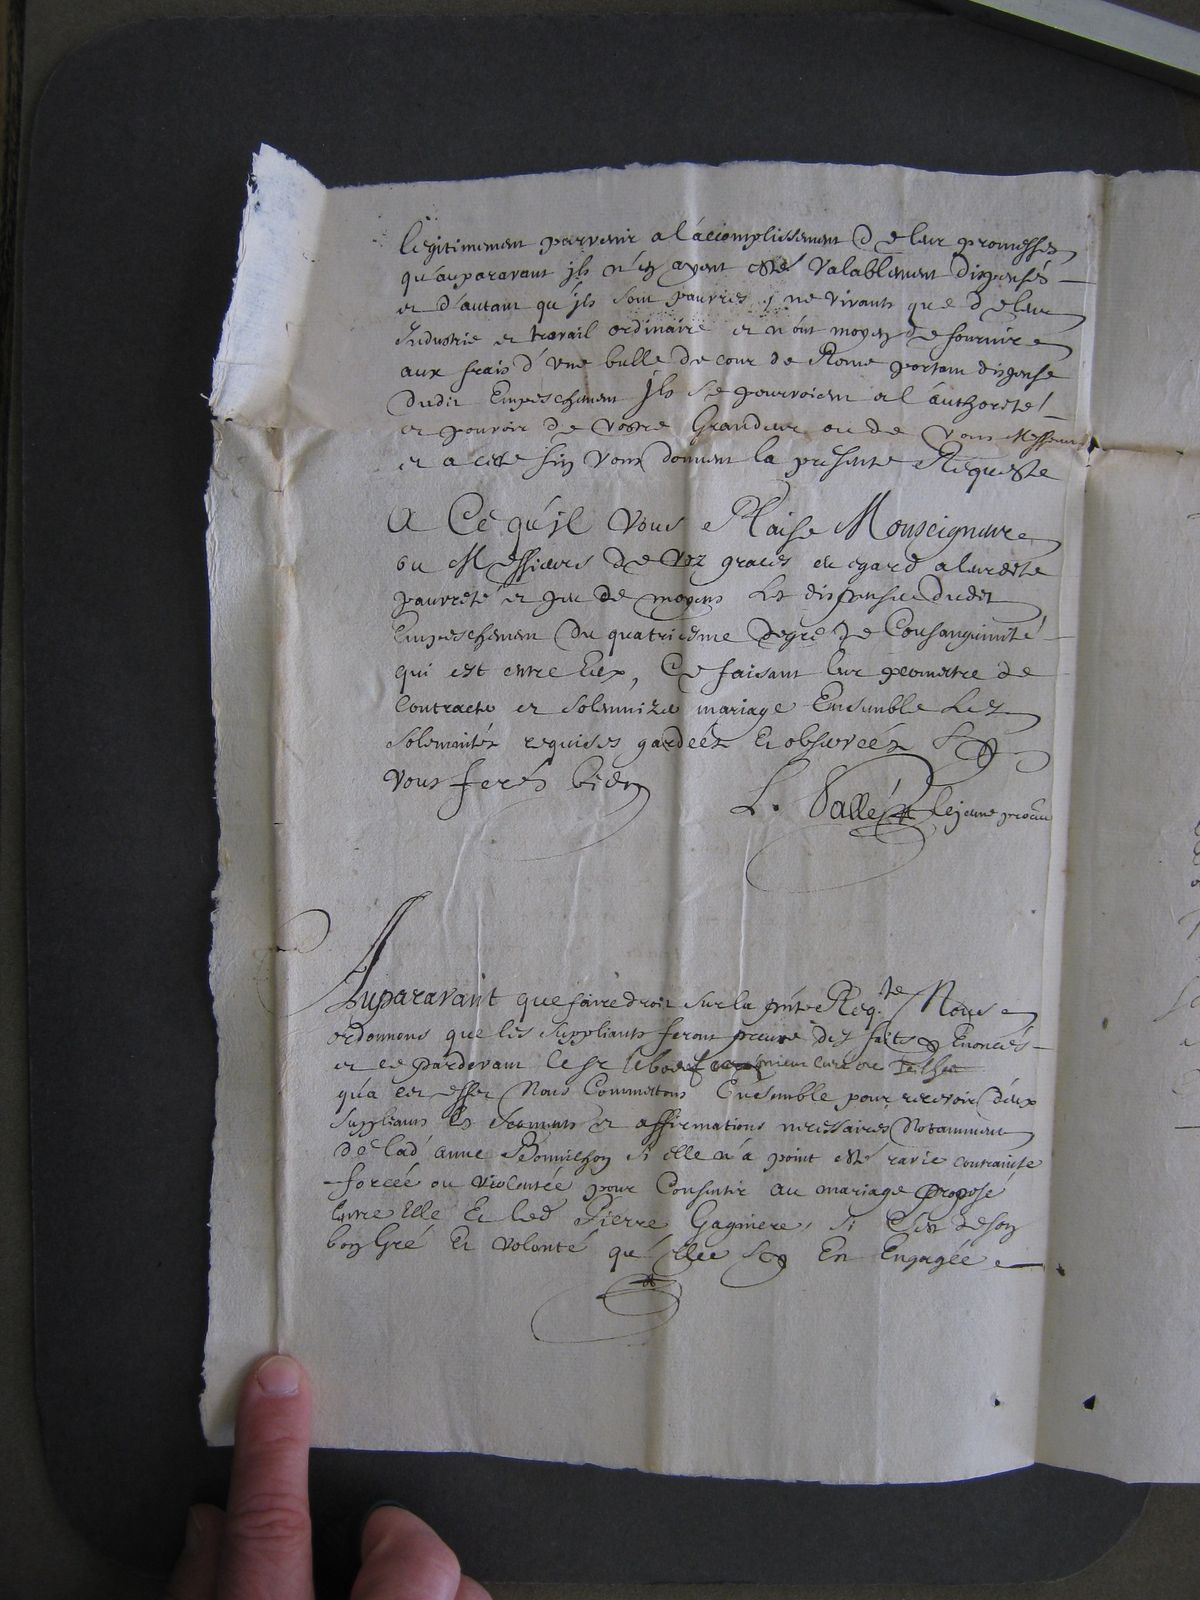 legitimement parvenir a l'acomplissement de leur promesses
qu'auparavant jls n'en ayent esté valablement dispensés
et d'autant qu'jls sont pauvres, ne vivants que de leur
Industrie et travail ordinaire et n'ont moyen de fournir
aux frais d'une bulle de cour de Rome portant dispense
dudit Empeschement jls se pourvoient a l'authorité
et pouvoir de vostre Grandeur ou de vous Messieurs
et a cette fin vous donnent la presente Requeste
A Ce qu'jl vous Plaise Monseigneur
ou Messieurs de voz graces eu egard a leurdite
pauvreté et peu de moyens les dispenser dudit
Empeschement du quatriesme degré de Consanguinité
qui est entre Eux, Ce faisant leur permettre de
Contracter et solemnizer mariage Ensemble Les
solemnités requises gardées et observées
vous ferés bien
L. Vallée lejeune
Auparavant que faire droit sur la pnte Reqte Nous
ordonnons que les suppliants feront preuve des faits Enoncés
et ce pardevant le sr
qu'a cet effet Nous Commettons Ensemble pour recevoir d'eux
suppliants les serments et affirmations necessaires Notamment
de lad anne si elle n'a point esté ravie contrainte
forcée ou violentée pour Consentir au mariage proposé
Entre Elle Et led Pierre Gaginere, si C'est de son
bon Gré Et volonté qu'elle Engagée